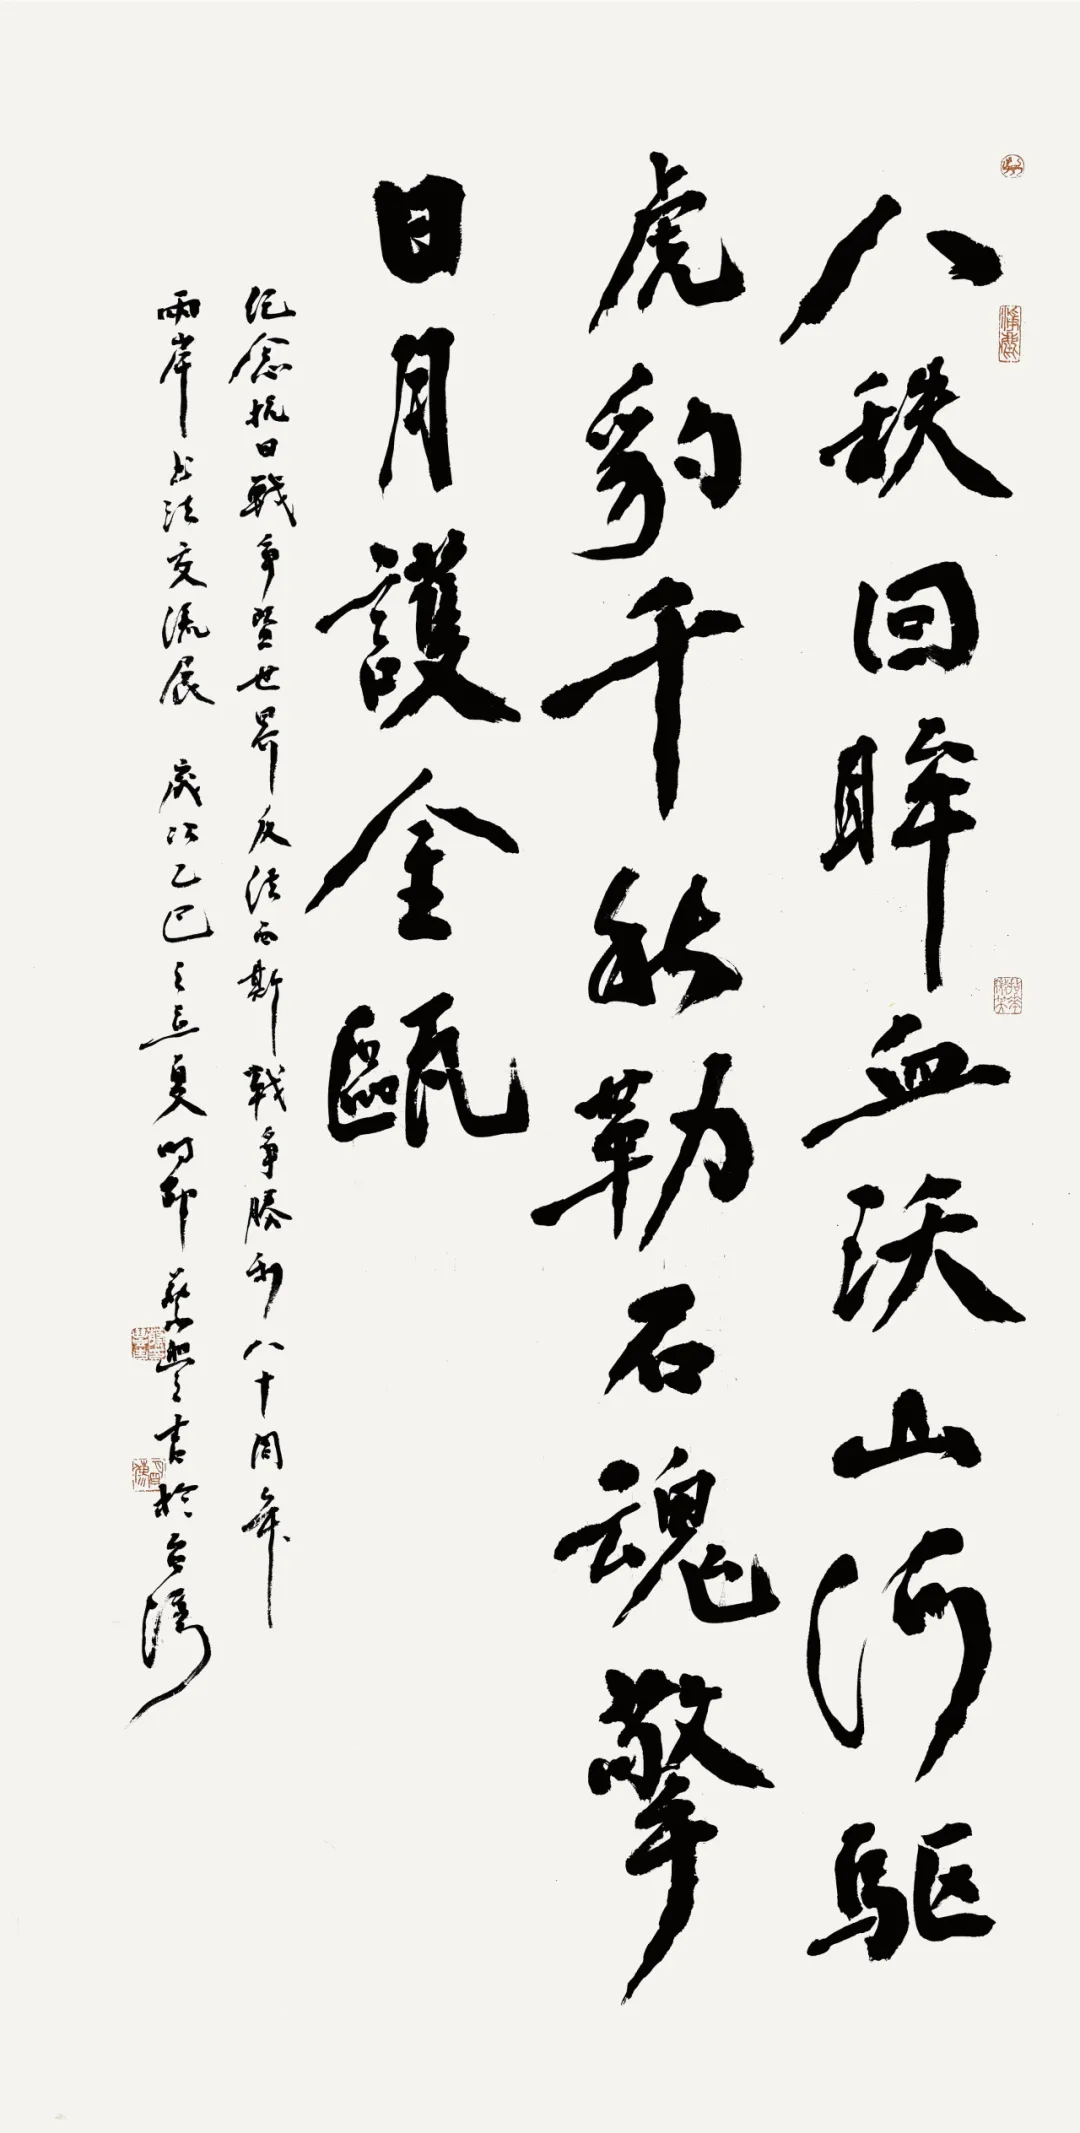 八秩回眸血沃山河驱
虎豹千秋勒石魂擎
日月護金甌
纪念抗日戰争暨世界反法西斯戰争勝利八十周年
兩岸书法交流展 歲次乙巳之立夏时节 蔡豐吉於台灣